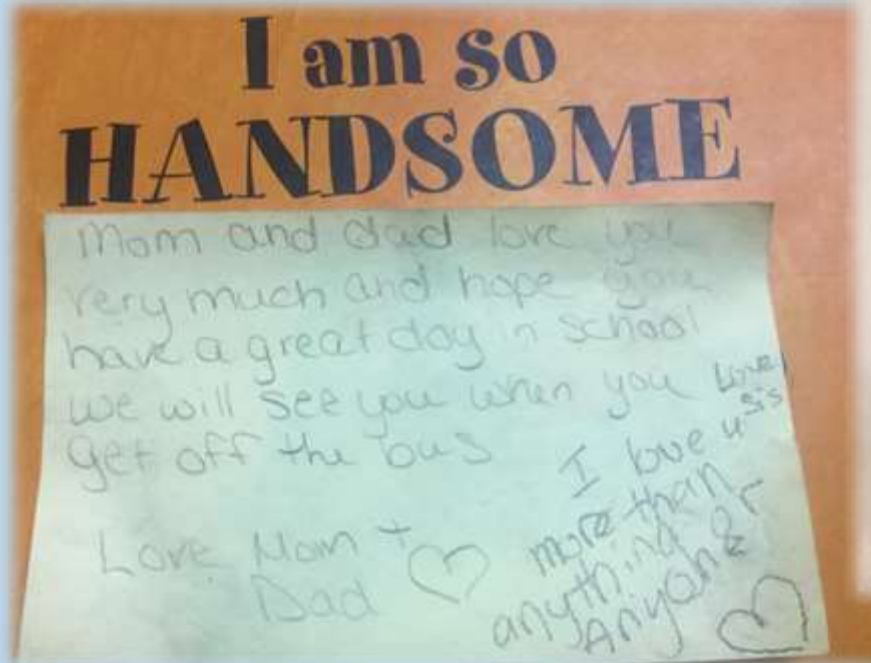 I am so
HANDSOME
Mom and dad love you
very much and hope you
have a great day n school
we will see you when you
get off the bus
Love Mom +
Dad
I love u
more than
anything or
Anyone
Love,
sis